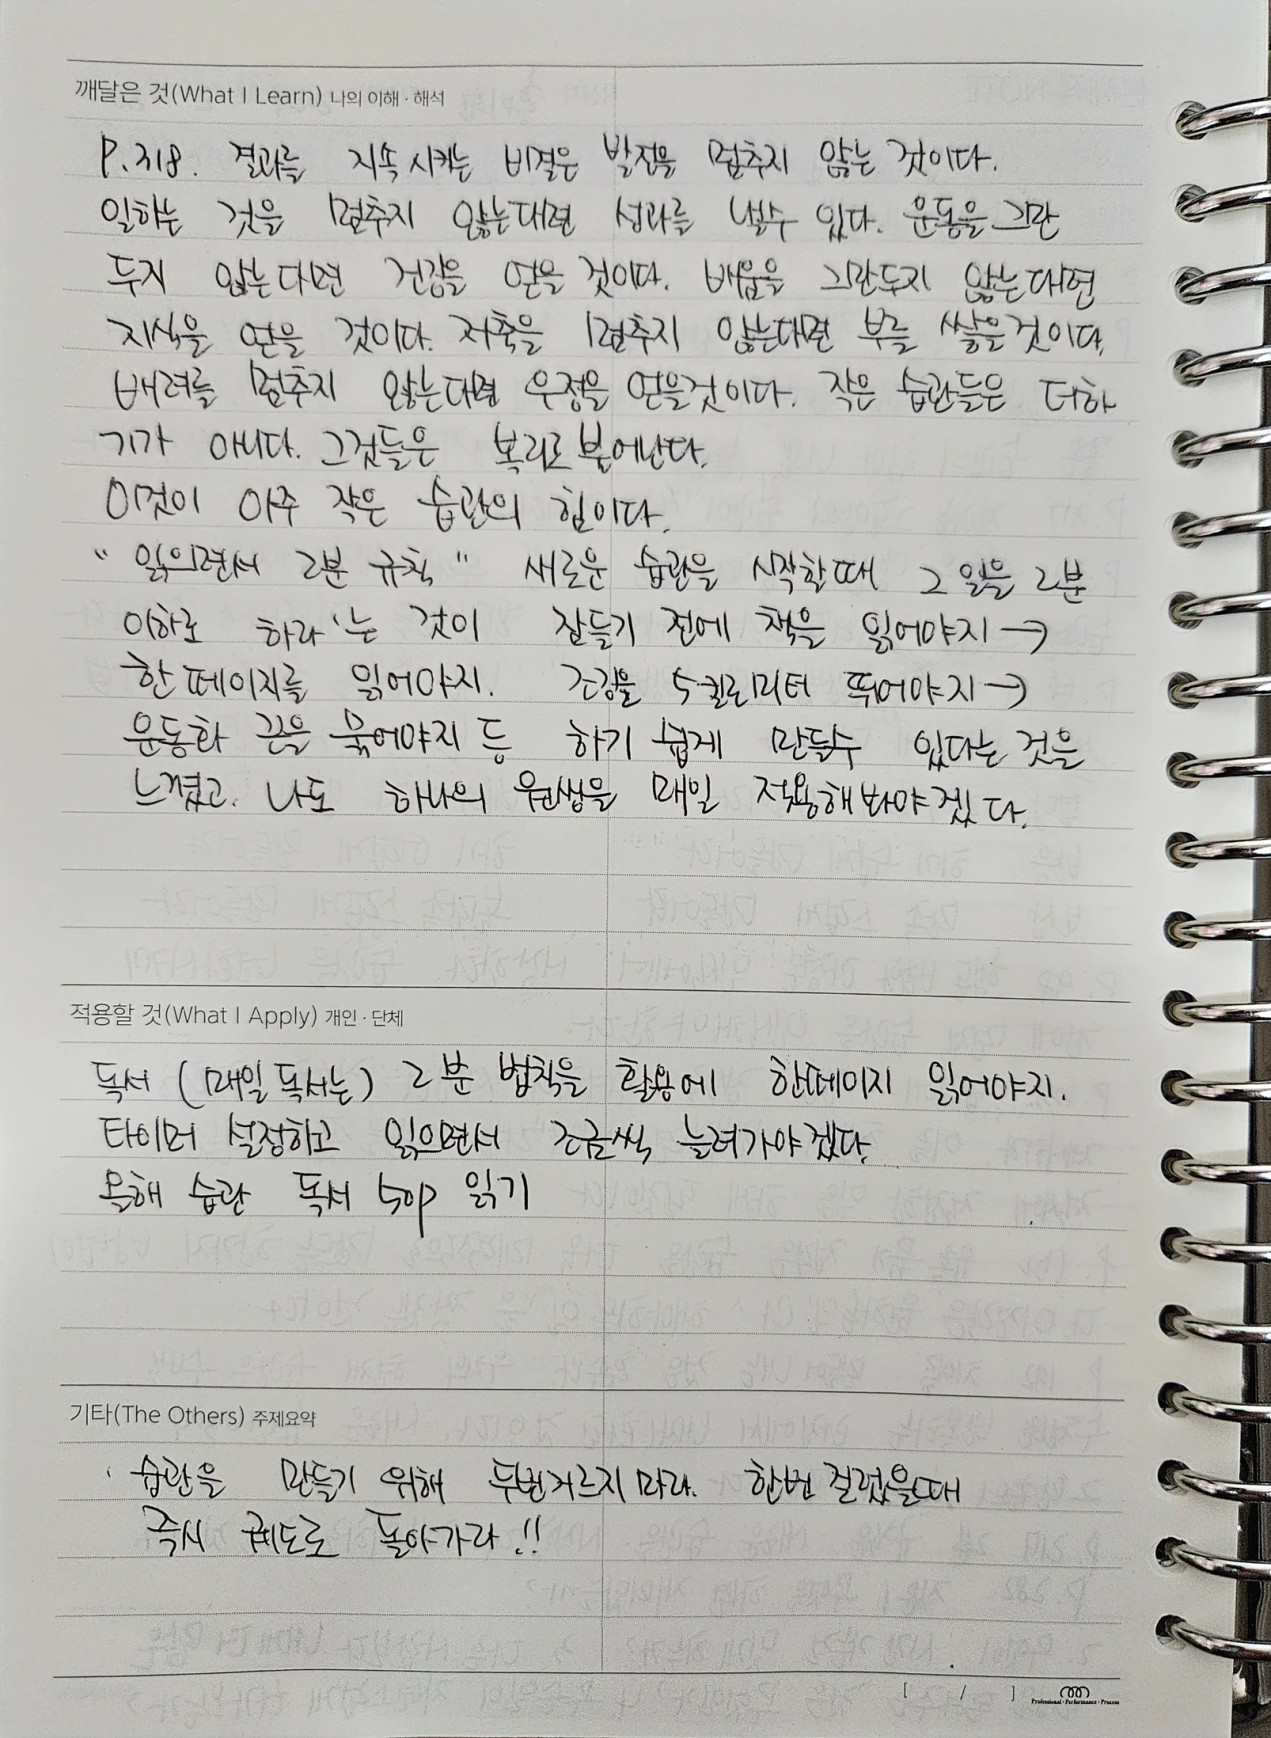 깨달은 것(What I Learn) 나의 이해 · 해석
P.318. 결과를 지속시키는 비결은 발전을 멈추지 않는 것이다.
일하는 것을 멈추지 않는대면 성과를 낼수 있다. 운동을 그만
두지 않는다면 건강을 얻을 것이다. 배움을 그만두지 않는대면
지식을 얻을 것이다. 저축을 멈추지 않는대면 부를 쌓을것이다.
배려를 멈추지 않는대면 우정을 얻을것이다. 작은 습관들은 더하
기가 아니다. 그것들은 복리로 불어난다.
이것이 아주 작은 습관의 힘이다.
" 읽으면서 2분 규칙 " 새로운 습관을 시작할때 그 일을 2분
이하로 하라'는 것이 잠들기 전에 책을 읽어야지 →
한페이지를 읽어야지. 조깅을 5킬로미터 뛰어야지 →
운동화 끈을 묶어야지 등 하기 쉽게 만들수 있다는 것을
느꼈고. 나도 하나의 매일 적용해봐야겠다.
적용할 것(What I Apply) 개인 · 단체
독서 (매일 독서는) 2분 법칙을 활용에 한페이지 읽어야지.
타이머 설정하고 읽으면서 조금씩 늘려가야겠다.
올해 습관 독서 50p 읽기
기타(The Others) 주제요약
' 습관을 만들기 위해 두번거르지마라. 한번 걸렀을때
즉시 궤도로 돌아가라!!
[ / ]
Professional · Performance · Process